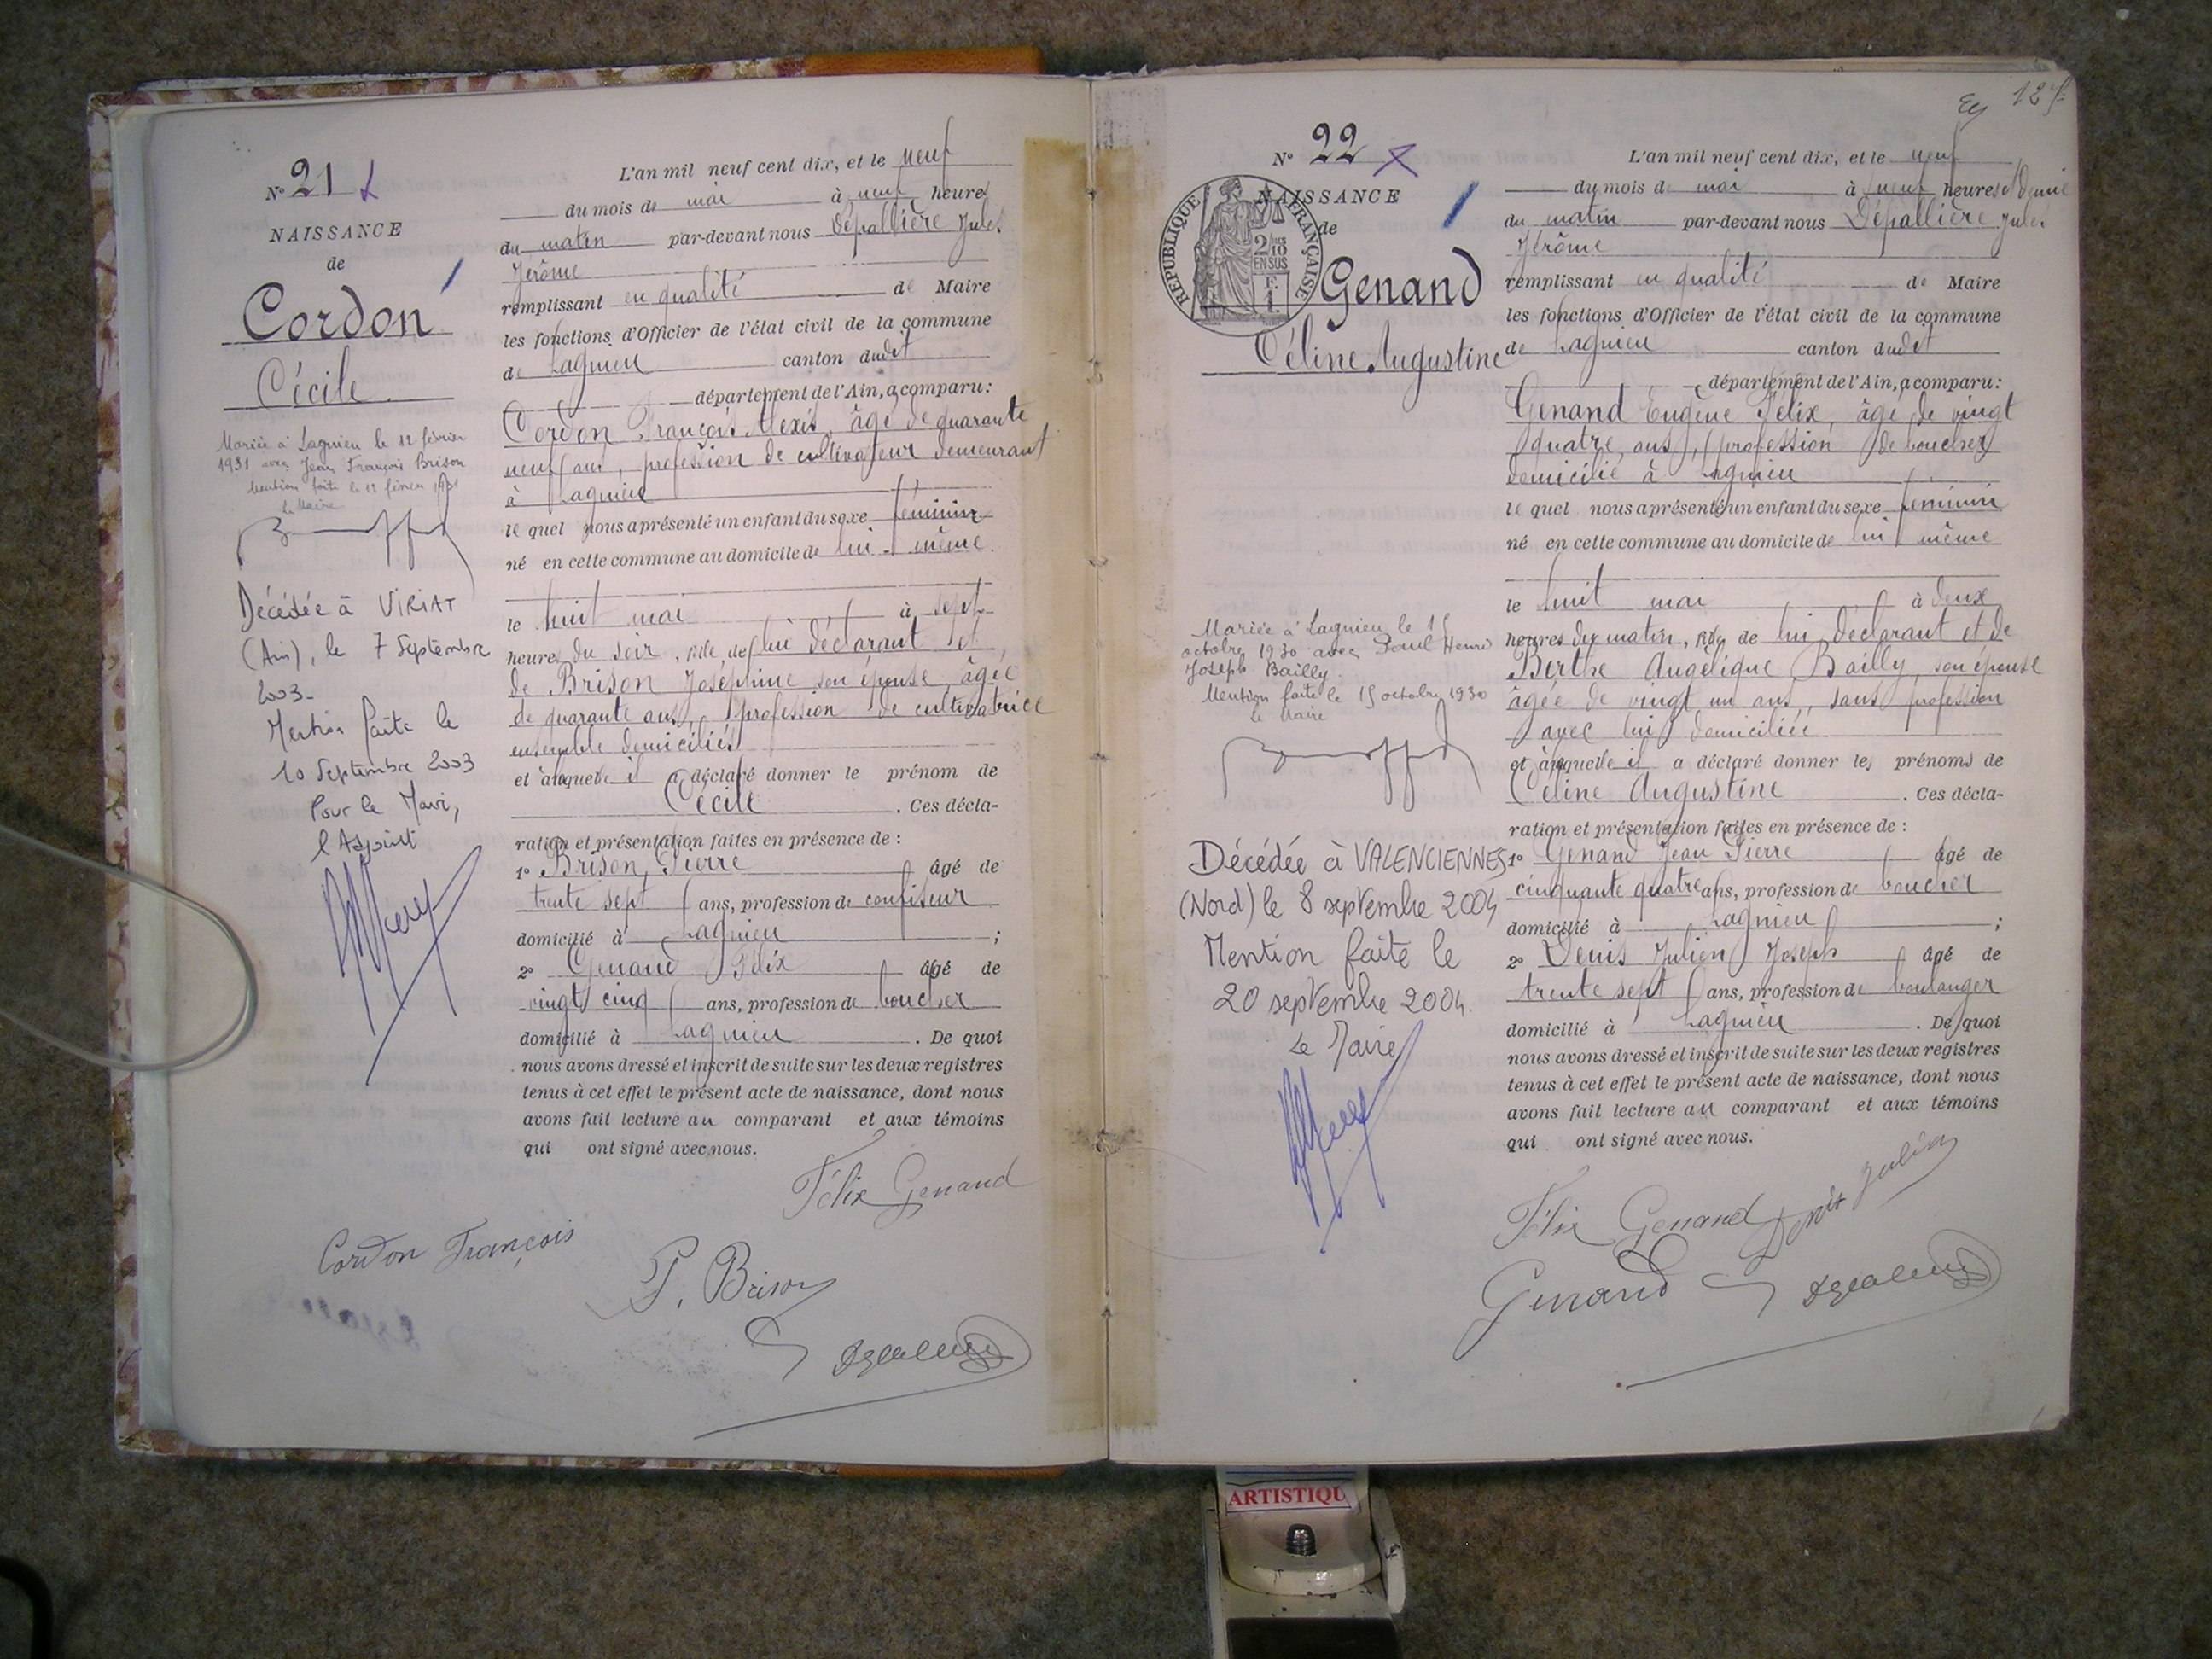 N° 21
NAISSANCE
de
Cordon
Cécile
Mariée à Lagnieu le 12 février
1931 avec Jean François Brison
Mention faite le 12 février 1931
Le Maire
Décédée à VIRIAT
(Ain), le 7 Septembre
2003-
Mention faite le
10 Septembre 2003
Pour le Maire,
l'Adjoint
L'an mil neuf cent dix, et le neuf
du mois de mai à neuf heures
du matin par-devant nous Dépallière Jules
Jérôme
remplissant en qualité de Maire
les fonctions d'Officier de l'état civil de la commune
de Lagnieu canton dudit
département de l'Ain, a comparu:
Cordon François Alexis, âgé de quarante
neuf ans, profession de cultivateur demeurant
à Lagnieu
lequel nous a présenté un enfant du sexe féminin
né en cette commune au domicile de lui-même
le huit mai à sept
heures du soir, fille de lui déclarant et
de Brison Joséphine son épouse, âgée
de quarante ans, profession de cultivatrice
ensemble domiciliés
et à laquelle il a déclaré donner le prénom de
Cécile. Ces décla-
ration et présentation faites en présence de :
1° Brison Pierre âgé de
trente sept ans, profession de confiseur
domicilié à Lagnieu ;
2° Genand Félix âgé de
vingt cinq ans, profession de boucher
domicilié à Lagnieu. De quoi
nous avons dressé et inscrit de suite sur les deux registres
tenus à cet effet le présent acte de naissance, dont nous
avons fait lecture au comparant et aux témoins
qui ont signé avec nous.
Félix Genand
Cordon François
P. Brison
127
N° 22
NAISSANCE
de
Genand
Céline Augustine
RÉPUBLIQUE FRANÇAISE
2/10
EN SUS
Mariée à Lagnieu le 15
octobre 1930 avec Paul Henri
Joseph Bailly.
Mention faite le 15 octobre 1930
Le Maire
Décédée à VALENCIENNES
(Nord) le 8 septembre 2004
Mention faite le
20 septembre 2004.
Le Maire
L'an mil neuf cent dix, et le neuf
du mois de mai à neuf heures et demie
du matin par-devant nous Dépallière Jules
Jérôme
remplissant en qualité de Maire
les fonctions d'Officier de l'état civil de la commune
de Lagnieu canton dudit
département de l'Ain, a comparu:
Genand Eugène Félix, âgé de vingt
quatre ans, profession de boucher
domicilié à Lagnieu
lequel nous a présenté un enfant du sexe féminin
né en cette commune au domicile de lui même
le huit mai à deux
heures du matin, fille de lui déclarant et de
Berthe Angélique Bailly, son épouse
âgée de vingt un ans, sans profession
avec lui domiciliée
et à laquelle il a déclaré donner les prénoms de
Céline Augustine. Ces décla-
ration et présentation faites en présence de :
1° Genand Jean Pierre âgé de
cinquante quatre ans, profession de boucher
domicilié à Lagnieu ;
2° Denis Julien Joseph âgé de
trente sept ans, profession de boulanger
domicilié à Lagnieu. De quoi
nous avons dressé et inscrit de suite sur les deux registres
tenus à cet effet le présent acte de naissance, dont nous
avons fait lecture au comparant et aux témoins
qui ont signé avec nous.
Félix Genand Denis Julien
Genand
ARTISTIQU